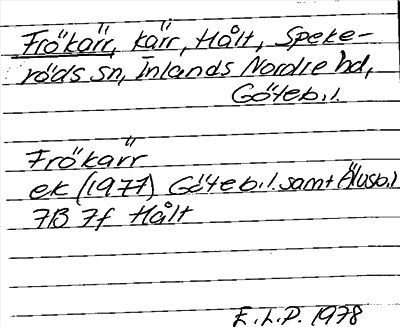 Frökärr, kärr, Hålt, Speke-
röds sn, Inlands Nordre hd,
Göteb.l.
Frökärr
ek (1977) Göteb.l. samt Älvsb.l
7B 7f Hålt
E.L.P. 1978